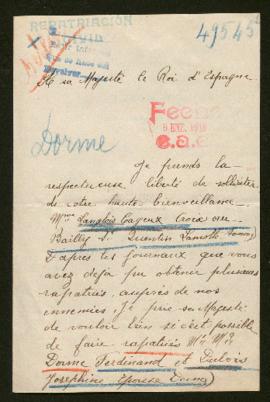 REPATRIACIÓN
49545
A sa Majesté le Roi d'Espagne
Fecha
ENE. 1918
e.a.e.
Dorme
Je prends la
respectueuse liberté de solliciter
de votre haute bienveillance
Mme Langlois Cayeux Croix
Bailly St Quentin Lamotte Somme
D'après les journaux que vous
avez déjà pu obtenir plusieurs
rapatriés, auprès de nos
ennemies. Je prie sa Majesté
de vouloir bien si c'est possible
de faire rapatriées Mr Mme
Dorme Ferdinand et Dubois
Joséphine Epouse Dorme